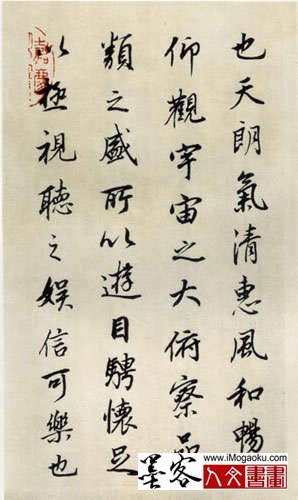 也天朗氣清惠風和暢
仰觀宇宙之大俯察品
類之盛所以遊目騁懷足
以極視聽之娛信可樂也
嘉慶
www.iMogaoku.com
墨客
人文書畫